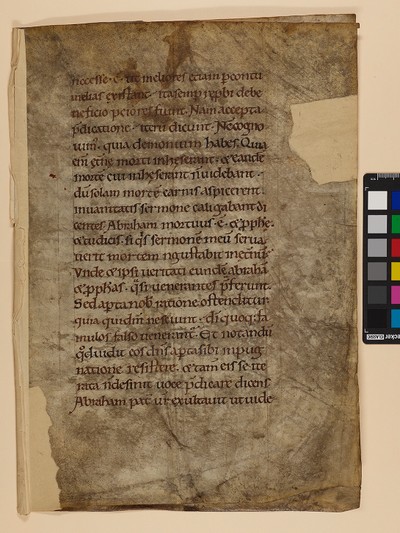 necesse · ē · ut meliores etiam p contu
melias existant · ita semp rep̄bi de be
neficio peiores fiunt · Nam accepta
p̄dicatione · iterū dicunt · Nc̄ cogno
uim᷒ · quia demonium habes. Quia
enim etn̄e morti inheserant · et eande
morte cui inheserant n̄ uidebant ·
du solam mortē carnis aspicerent ·
in ueritatis sermone caligabant di
centes Abraham mortuus · ē · et p̄phę ·
et tu dicis · si q̄s sermonē meū serua
uerit mortem n̄ gustabit in eternū ·
Unde et ipsi ueritati eunde abrahā
et p̄phas · q̄si uenerantes p̄ferunt.
Sed apta nob ratione ostenditur
quia qui dm̄ nesciunt · di quoq; fa
mulos falso uenerant᷒ · Et notandū
qd̄ uidit eos dns̄ apta sibi inpug
natione resistere · et tam̄ eis se ite
rata n̄ desinit uoce p̄dicare dicens
Abraham pat̄ ur̄ exultauit ut uide